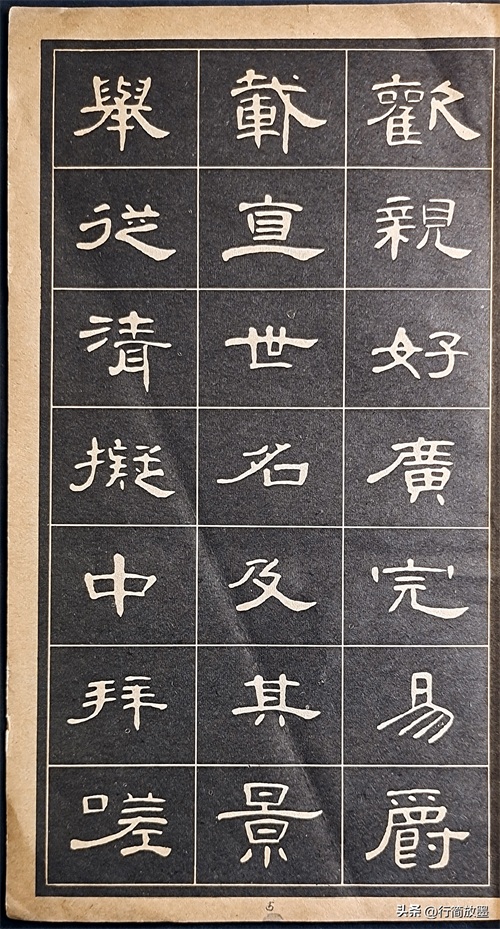 歡親好廣完易爵
載宣世名及其景
舉從清擬中拜嗟
5
头条 @行简放墨